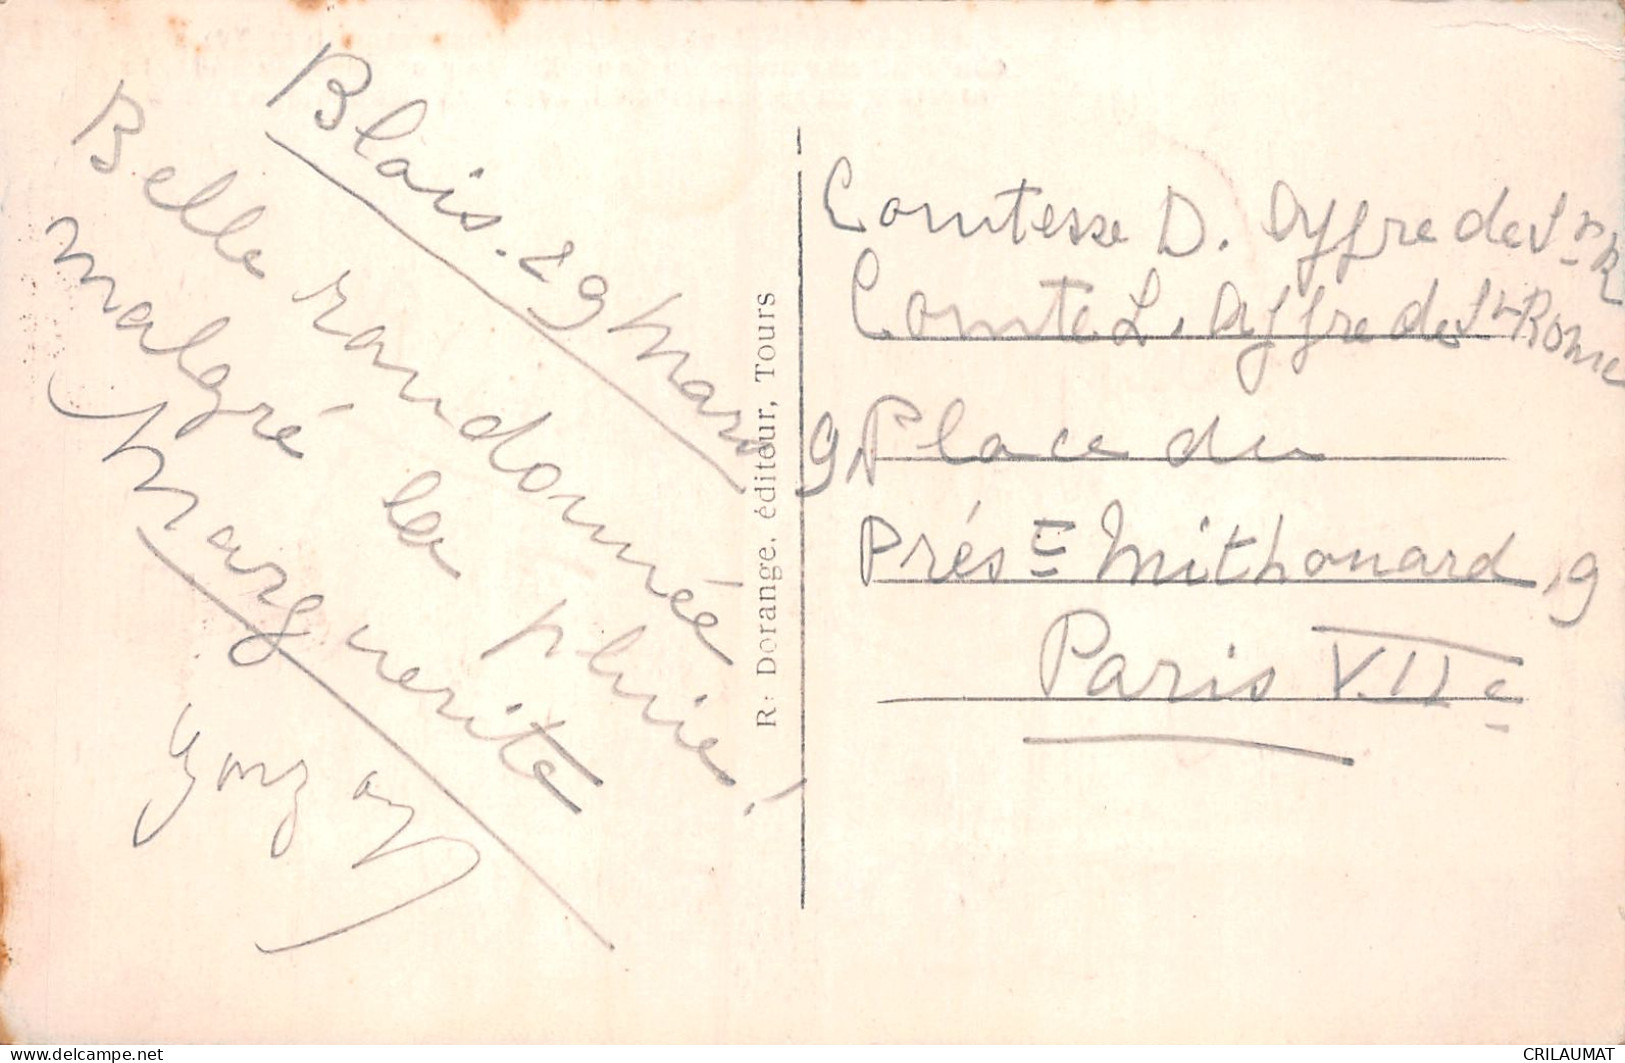 Blois. 29 Mars
Belle randonnée
malgré la pluie!
Marguerite
R. Dorange, éditeur, Tours
Comtesse D. Affre de St R
Comte L. Affre de St Rome
9, Place du
Prést Mithouard, 9
Paris VIIe
delcampe.net
CRILAUMAT